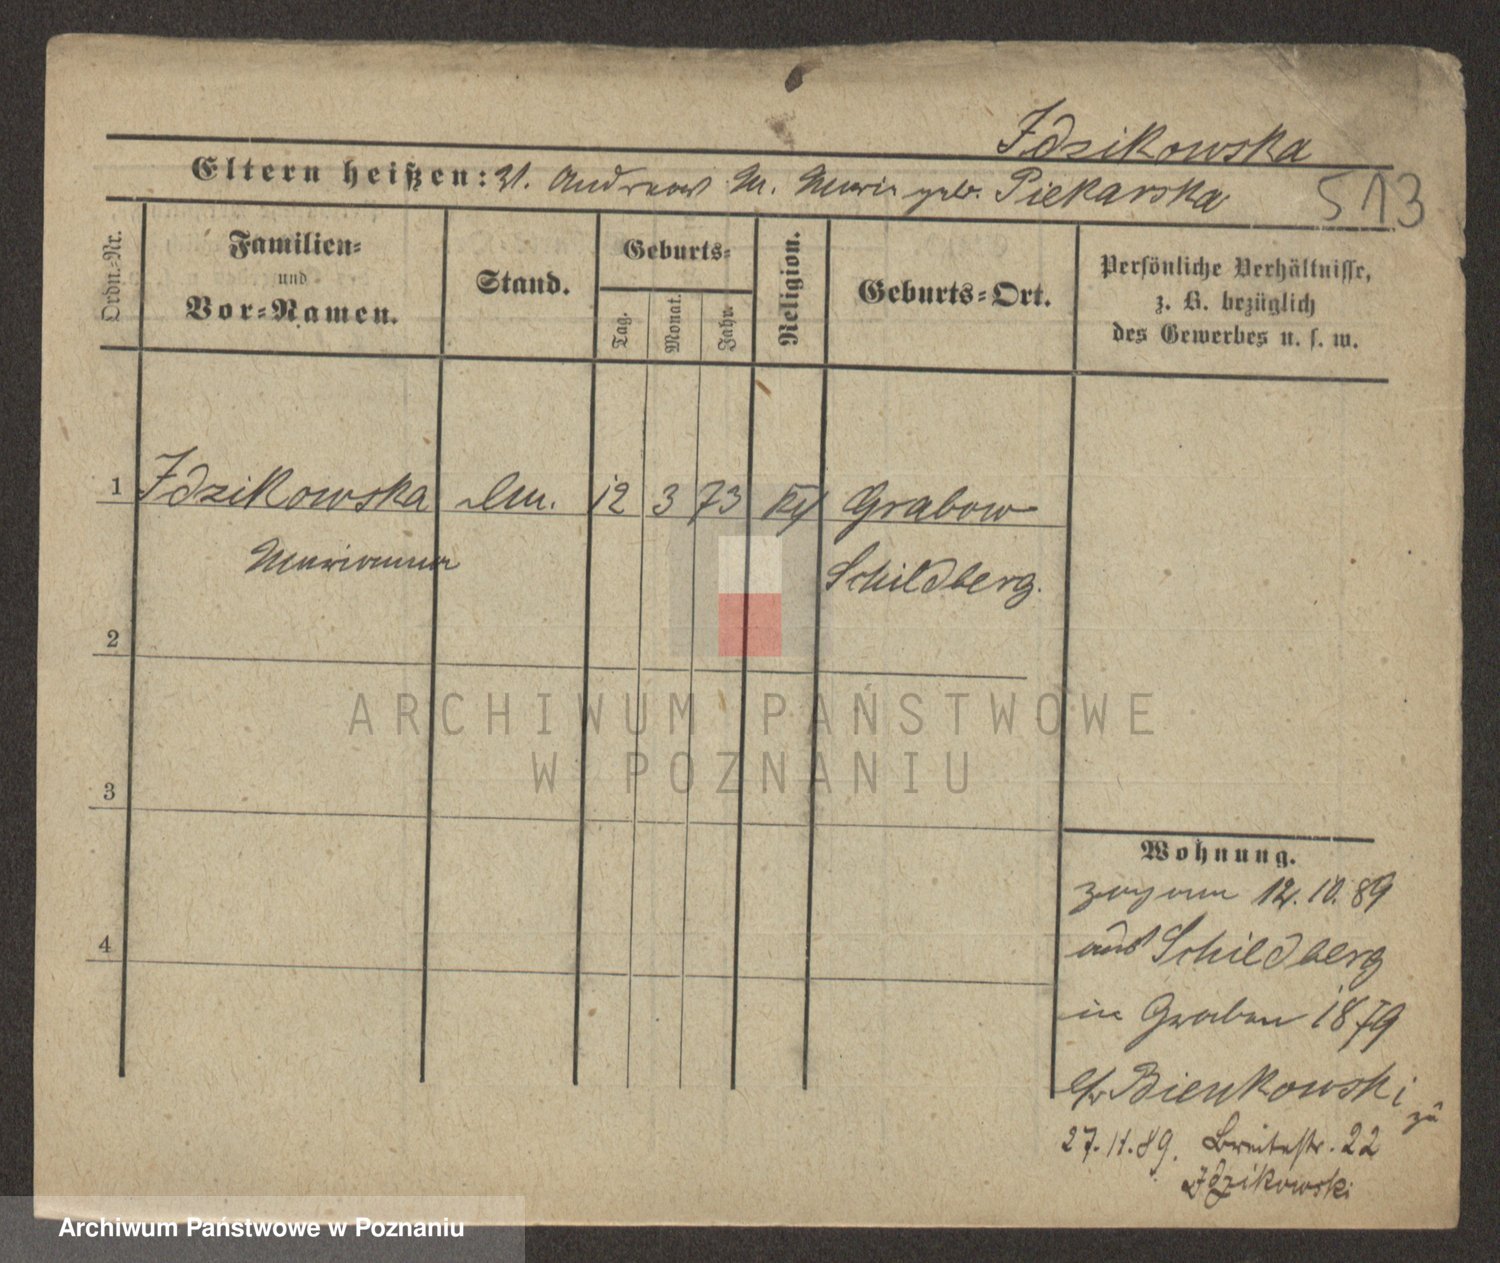 Idzikowska
Eltern heißen: V. Andreas M. Marie geb. Piekarska
513
Ordn.-Nr.
Familien-
und
Vor-Namen.
Stand.
Geburts-
Tag.
Monat.
Jahr.
Religion.
Geburts-Ort.
Persönliche Verhältnisse,
z. B. bezüglich
des Gewerbes u. s. w.
1 Idzikowska 12 3 73 Grabow
Marianna Schildberg.
2
3
4
Wohnung.
zog am 12.10.89
aus Schildberg
in Graben 18
b/ Bienkowski zu
27.11.89. Breitestr. 22
Idzikowski
ARCHIWUM PAŃSTWOWE
W POZNANIU
Archiwum Państwowe w Poznaniu